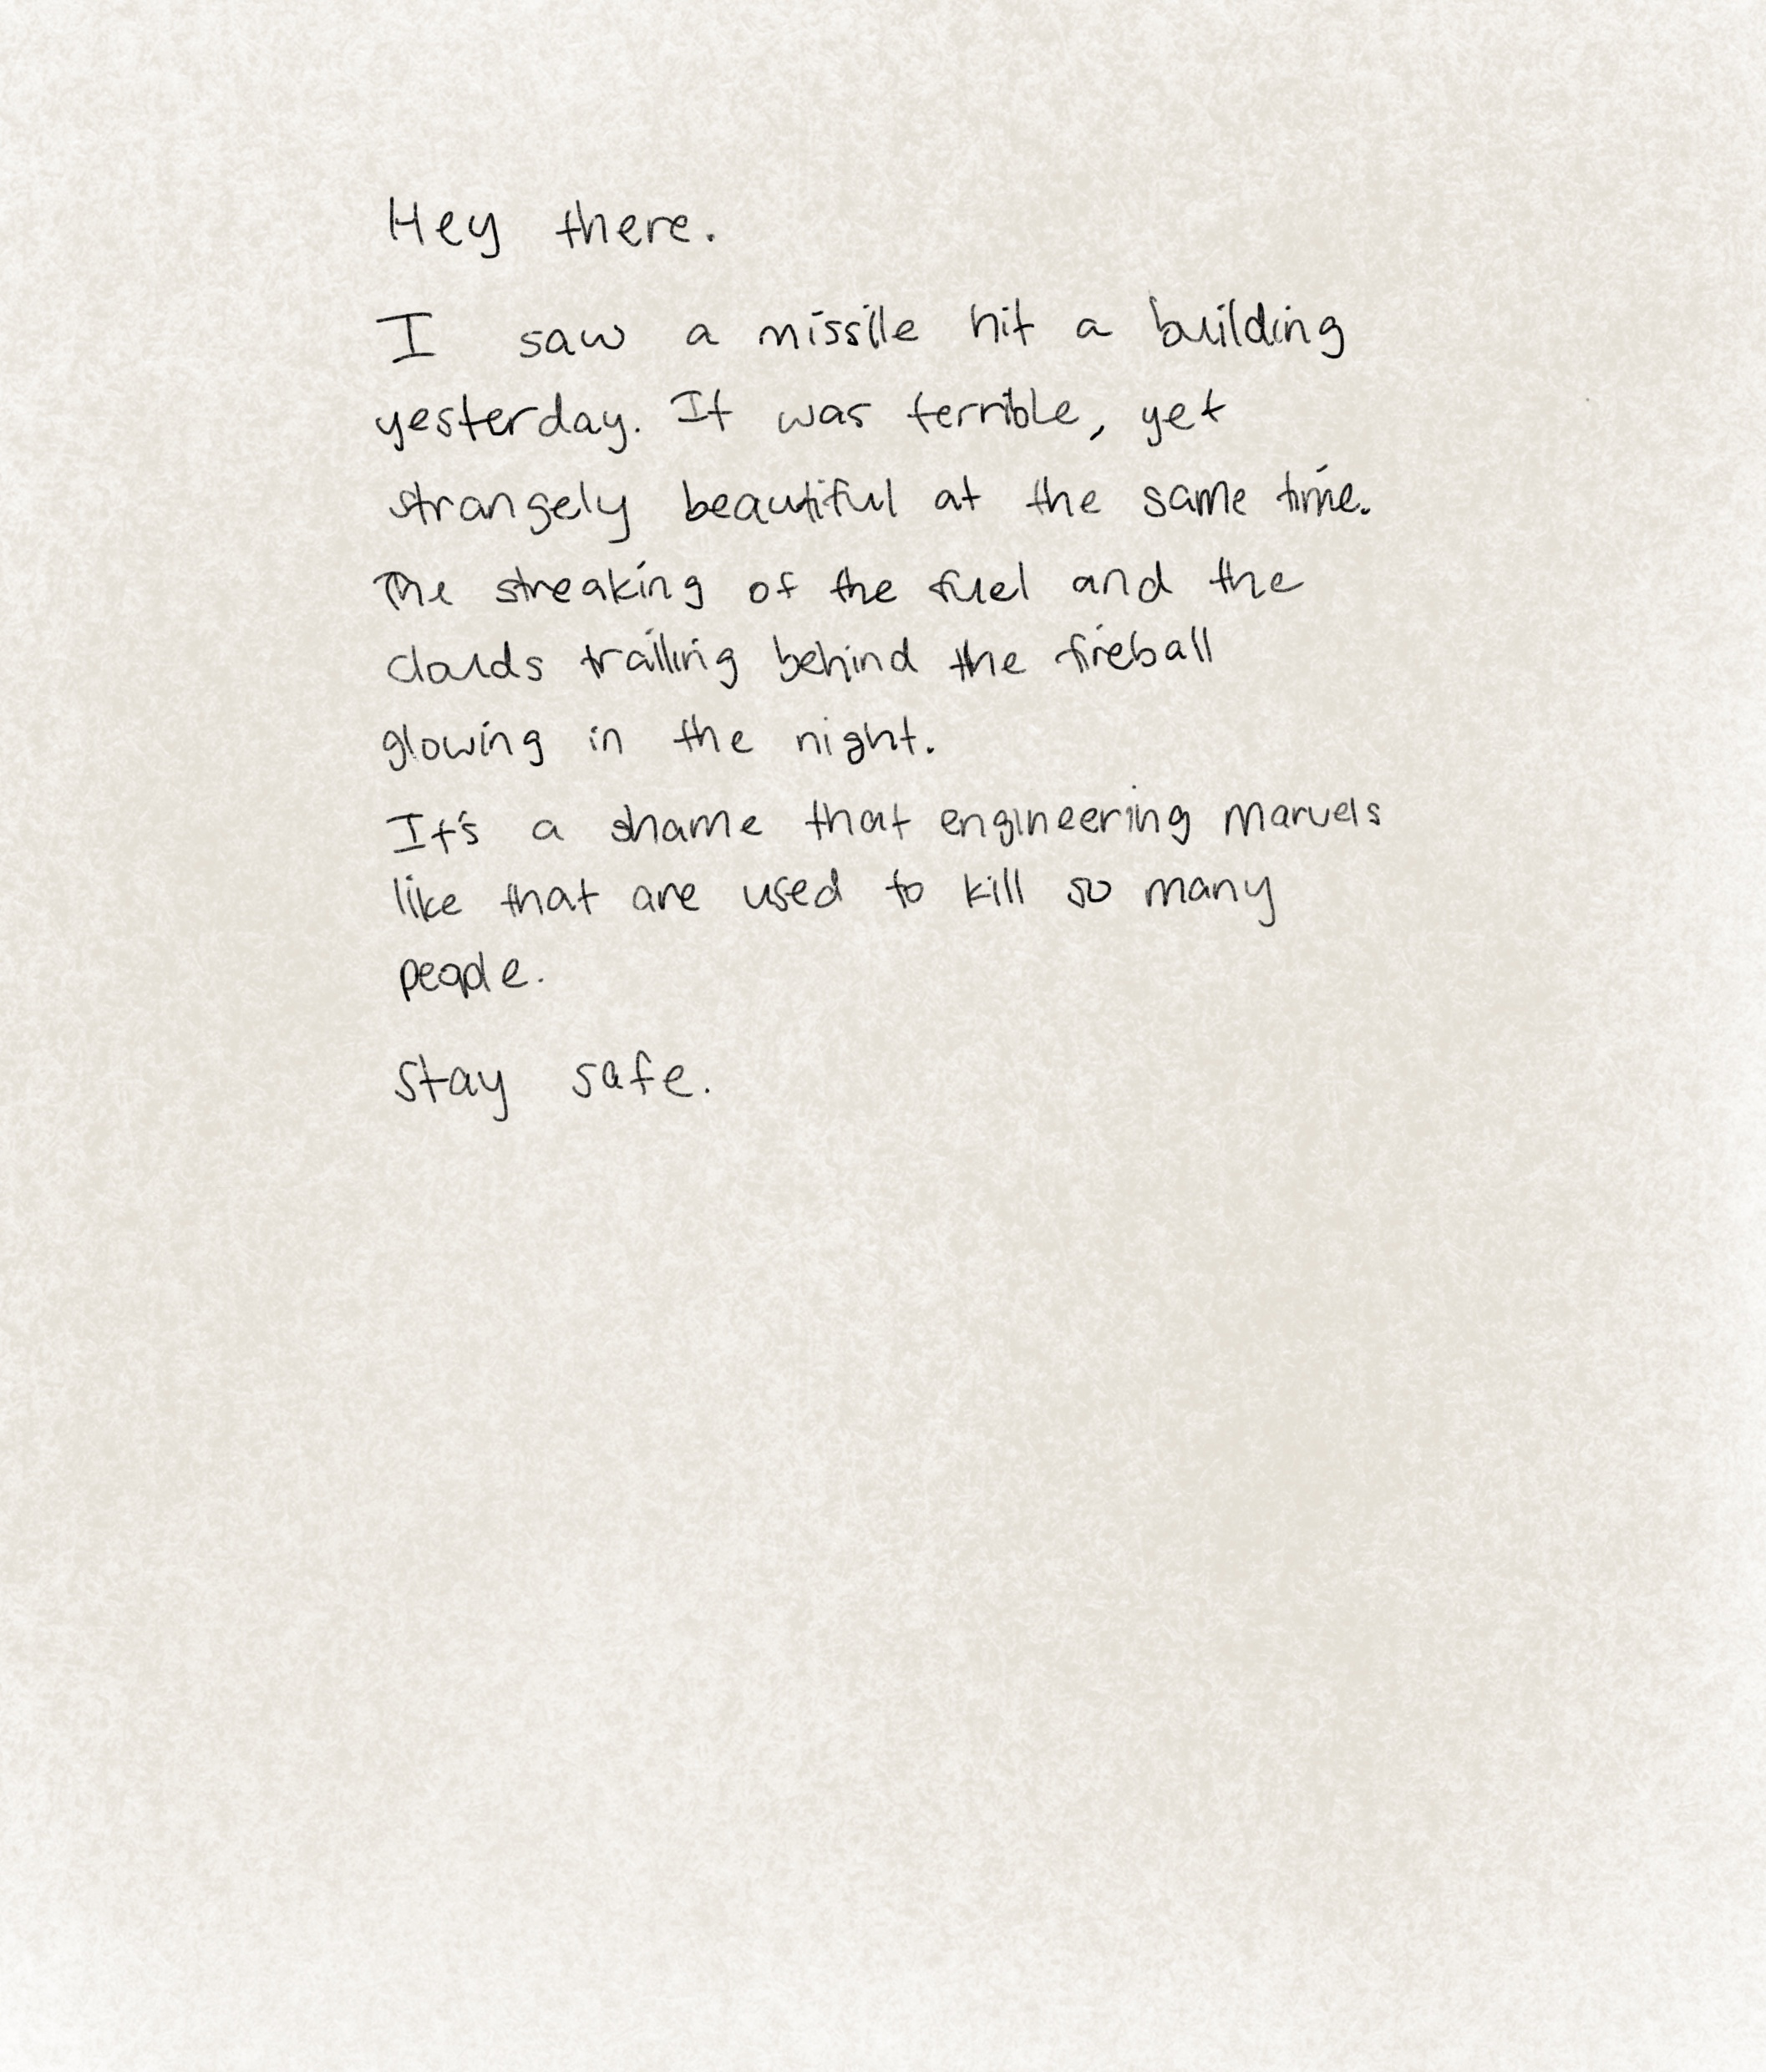 Hey there.
I saw a missile hit a building
yesterday. It was terrible, yet
strangely beautiful at the same time.
The streaking of the fuel and the
clouds trailing behind the fireball
glowing in the night.
It's a shame that engineering marvels
like that are used to kill so many
people.
Stay safe.